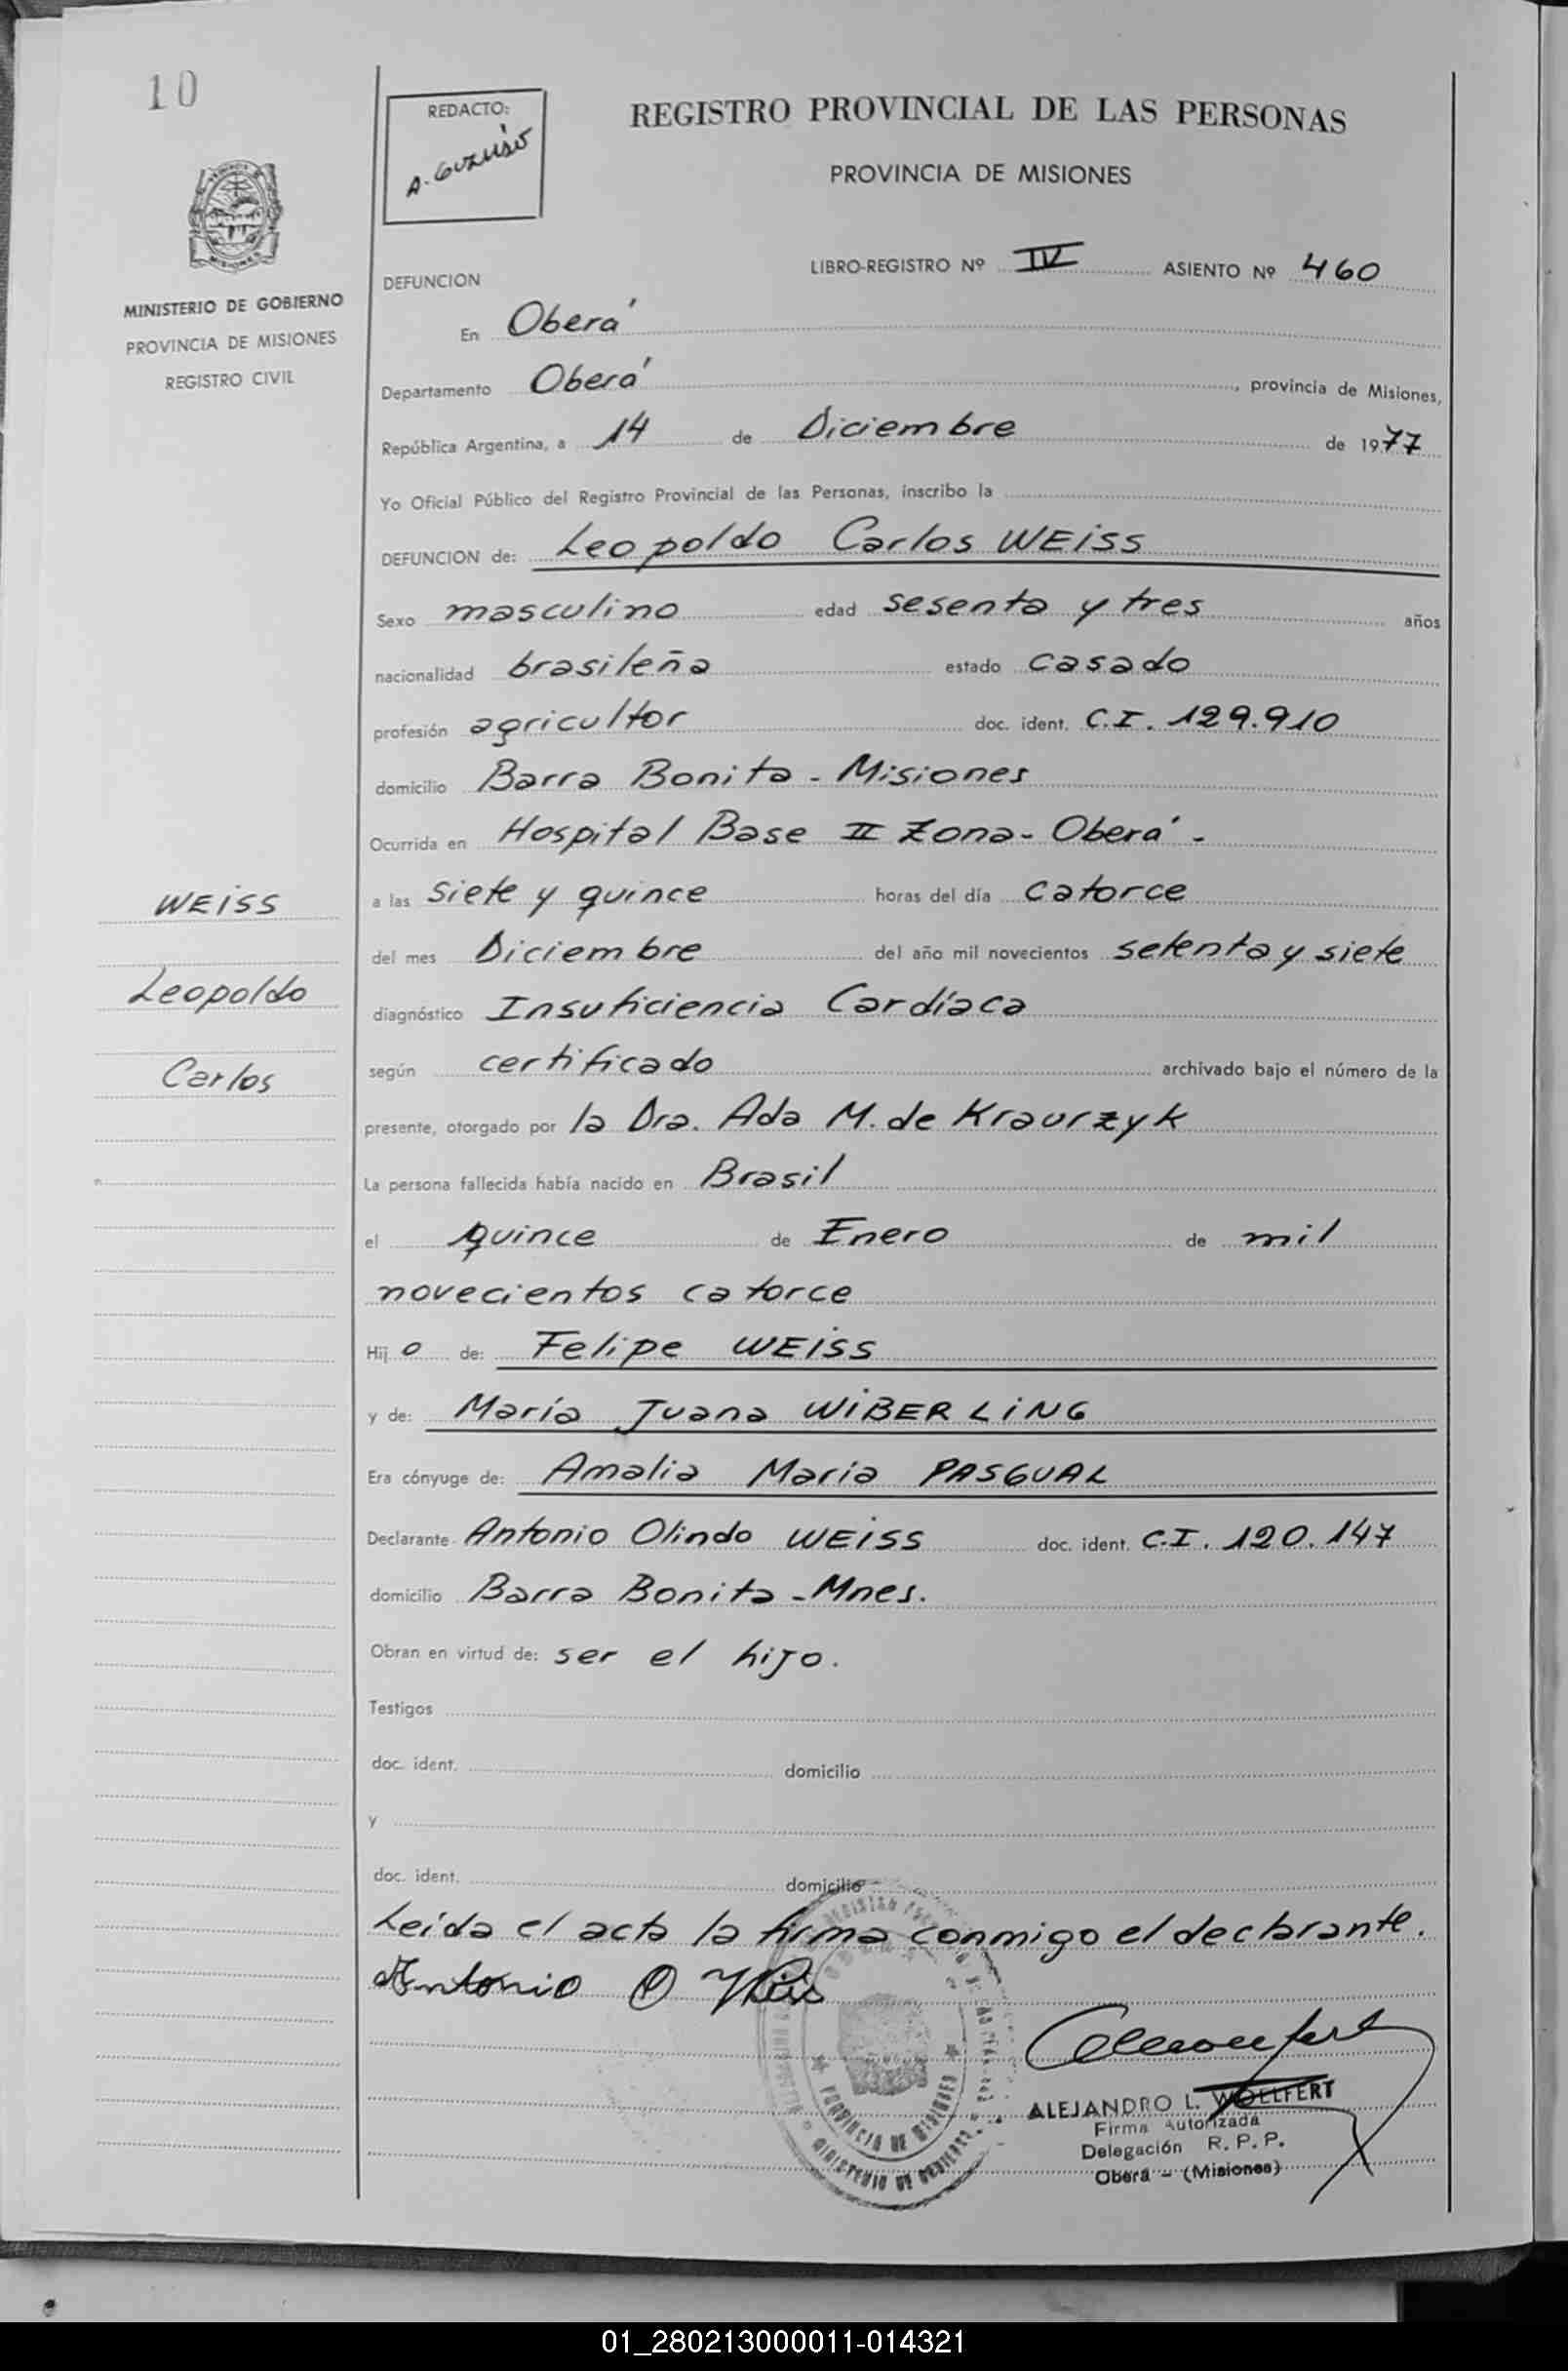 10
REDACTO:
REGISTRO PROVINCIAL DE LAS PERSONAS
PROVINCIA DE MISIONES
MISIONES
MINISTERIO DE GOBIERNO
PROVINCIA DE MISIONES
REGISTRO CIVIL
LIBRO-REGISTRO Nº IV ASIENTO Nº 460
DEFUNCION
En Oberá
Departamento Oberá, provincia de Misiones,
República Argentina, a 14 de Diciembre de 1977
Yo Oficial Público del Registro Provincial de las Personas, inscribo la
DEFUNCION de: Leopoldo Carlos WEiSS
Sexo masculino edad sesenta y tres años
nacionalidad brasileña estado casado
profesión agricultor doc. ident. C.I. 129.910
domicilio Barra Bonita - Misiones
Ocurrida en Hospital Base II Zona - Oberá -
a las siete y quince horas del día catorce
del mes Diciembre del año mil novecientos setenta y siete
diagnóstico Insuficiencia Cardíaca
según certificado archivado bajo el número de la
presente, otorgado por la Dra. Ada M. de Kraurzyk
La persona fallecida había nacido en Brasil
el quince de Enero de mil
novecientos catorce
Hij o de: Felipe WEiSS
y de: María Juana WiBERLiNG
Era cónyuge de: Amalia María PASGUAL
Declarante Antonio Olindo WEiSS doc. ident. C.I. 120.147
domicilio Barra Bonita - Mnes.
Obran en virtud de: ser el hijo.
Testigos
doc. ident. domicilio
y
doc. ident. domicilio
Leída el acta la firma conmigo el declarante.
Antonio O Weis
WEiSS
Leopoldo
Carlos
PROVINCIA DE MISIONES
MINISTERIO DE GOBIERNO
ALEJANDRO L. WOLLFERT
Firma Autorizada
Delegación R. P. P.
Oberá - (Misiones)
01_280213000011-014321